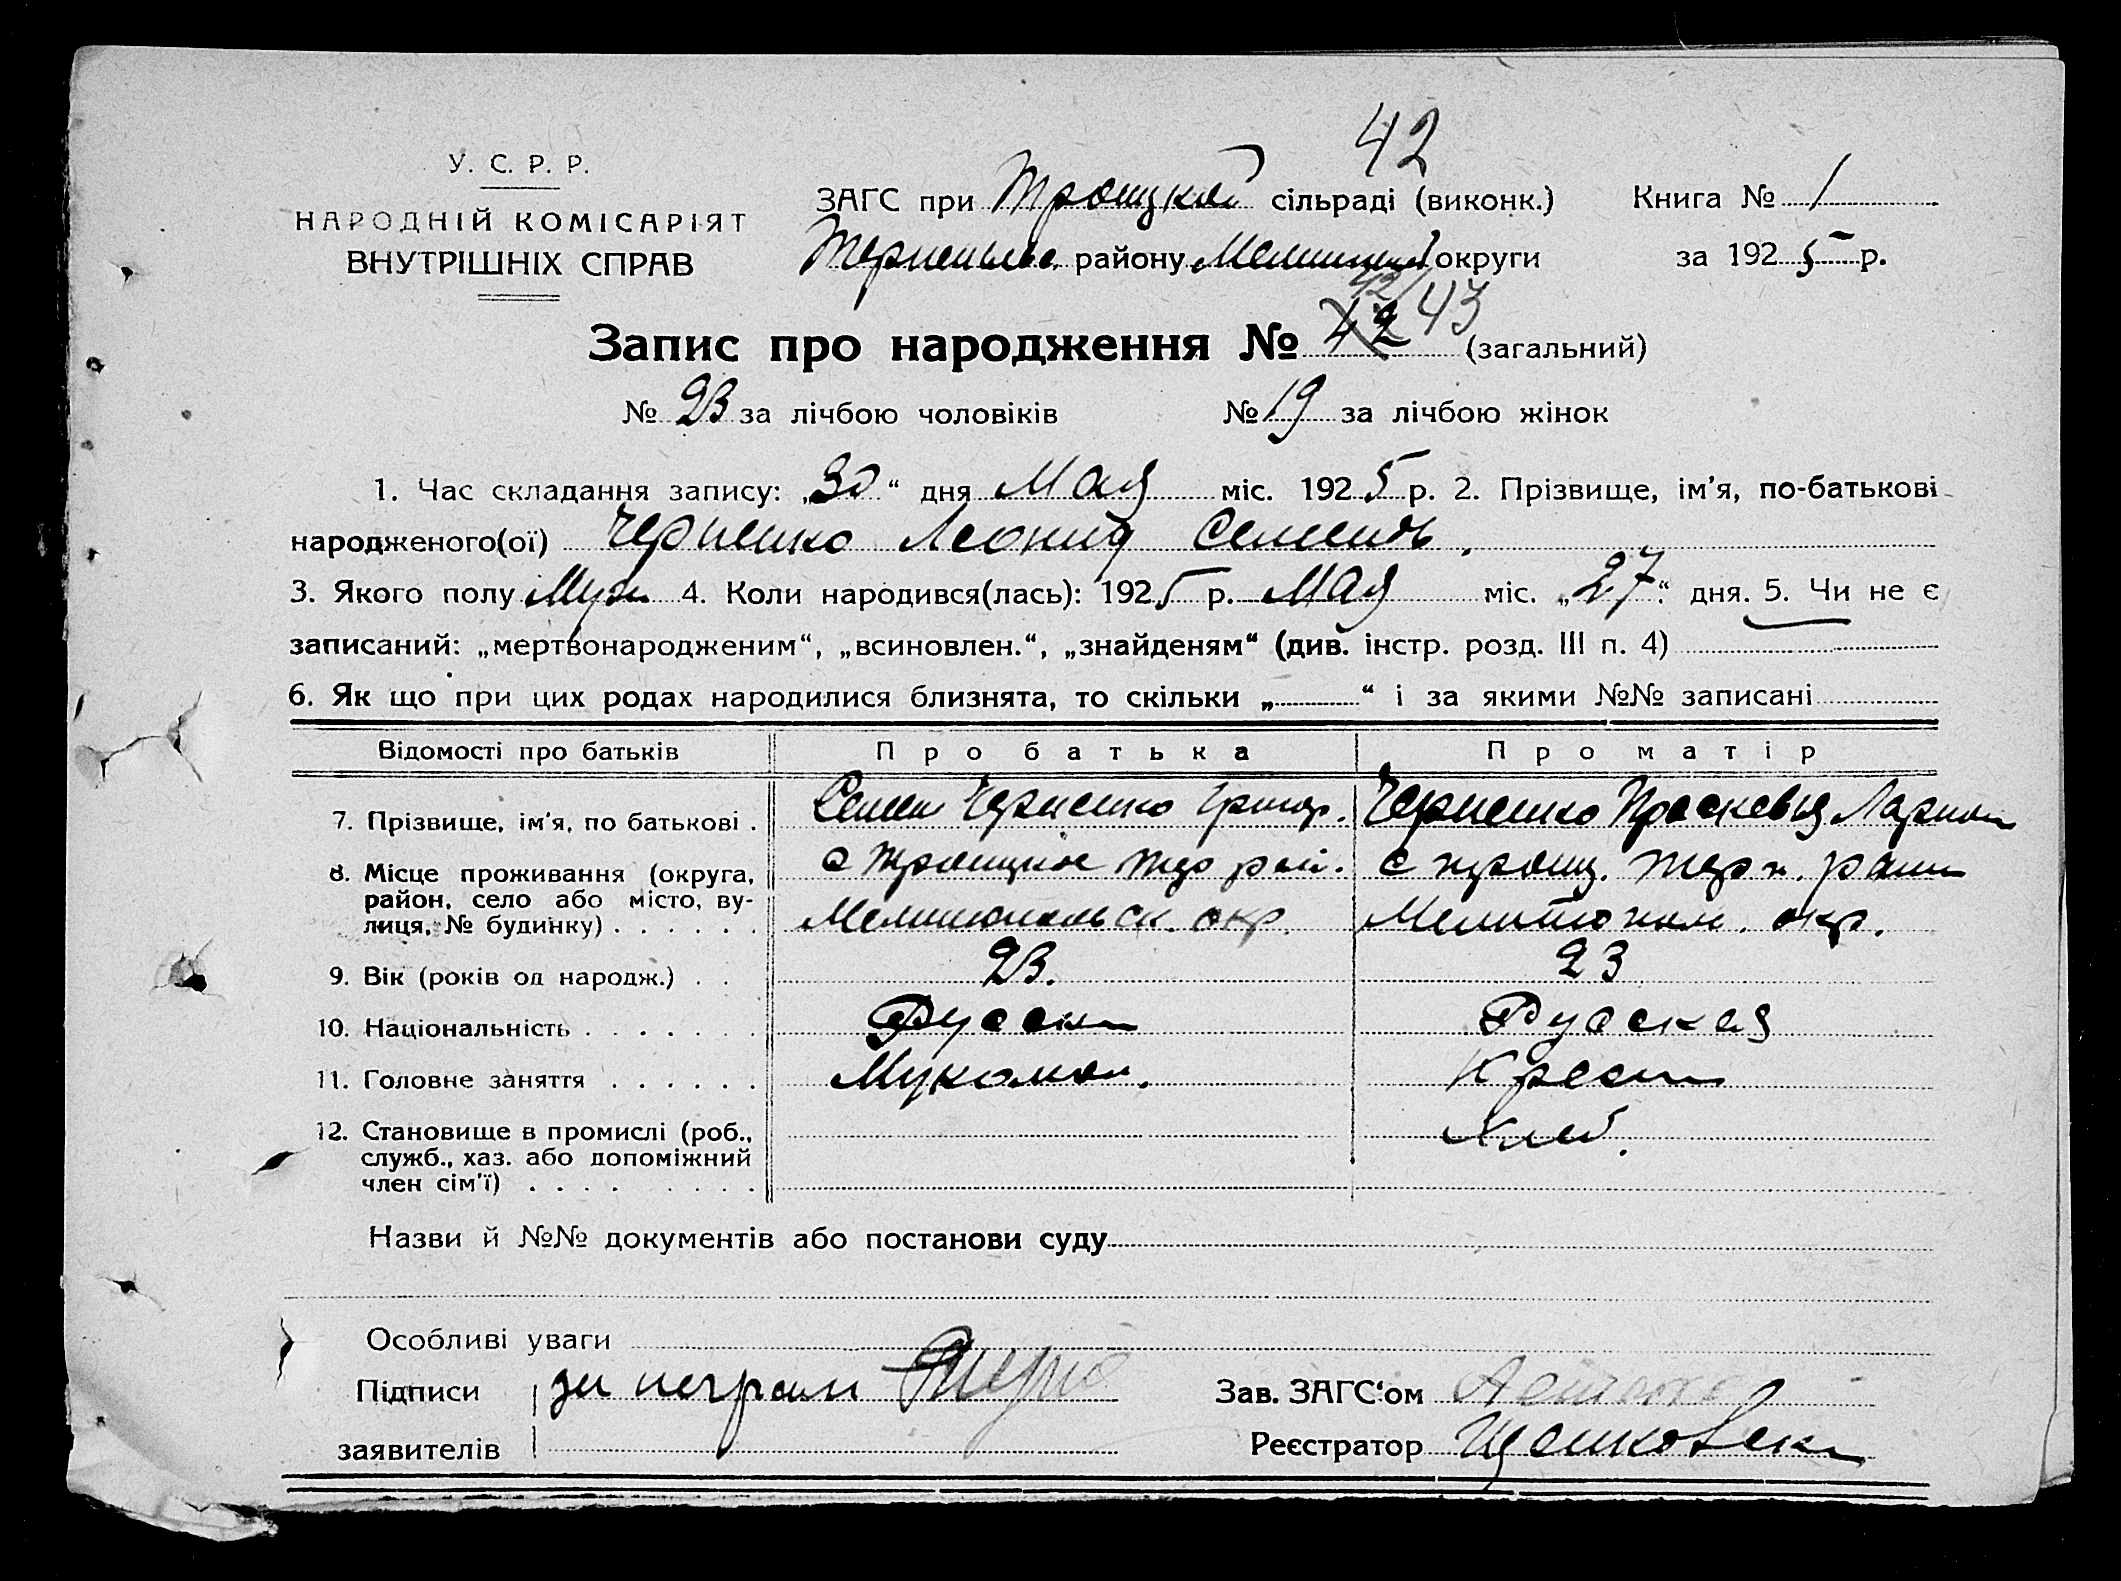 42
У. С. Р. Р.
НАРОДНІЙ КОМІСАРІЯТ
ВНУТРІШНІХ СПРАВ
ЗАГС при Троицкой сільраді (виконк.) Книга № 1
району округи за 1925 р.
Запис про народження № 42 43 (загальний)
№ 23 за лічбою чоловіків № 19 за лічбою жінок
1. Час складання запису: „30“ дня Мая міс. 1925 р. 2. Прізвище, ім'я, по-батькові
народженого(ої) Черненко Леонид
3. Якого полу Муж 4. Коли народився(лась): 1925 р. Мая міс. „27“ дня. 5. Чи не є
записаний: „мертвонародженим“, „всиновлен.“, „знайденям“ (див. інстр. розд. III п. 4)
6. Як що при цих родах народилися близнята, то скільки „ “ і за якими №№ записані
Відомості про батьків Про батька Про матір
7. Прізвище, ім'я, по батькові . Семен Черненко Григор. Черненко Прасковья
8. Місце проживання (округа, с с троиц. терн.
район, село або місто, ву-
лиця, № будинку) . . . . . . окр. Мелитопол. окр.
9. Вік (років од народж.) . . 23. 23
10. Національність . . . . . . . Русский Русская
11. Головне заняття . . . . . . Мукомол. Крест
12. Становище в промислі (роб., Хлеб.
служб., хаз. або допоміжний
член сім'ї) . . . . . . . .
Назви й №№ документів або постанови суду
Особливі уваги
Підписи за неграм Зав. ЗАГС'ом
заявителів Реєстратор